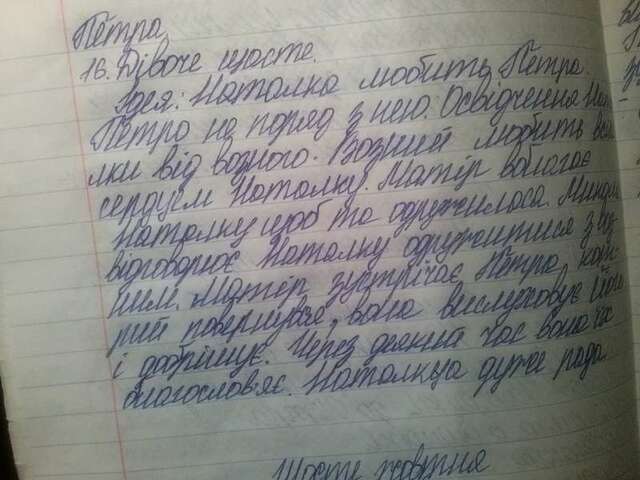 Петра
16. Дівоче щастє.
Ідея: Наталка любить Петра.
Петро не поряд з нею. Освідчення Ната
лки від возного. Возний любить всім
серцем Наталку. Матір вблагає
Наталку щоб та одружилась. Микола
відговорює Наталку одружитися з воз
ним. Матір зустрічає Петра, кот
рий повернувся, вона вислуховує його
і добрішує. Через деякий час вона їх
благословяє. Наталка дуже рада.
Шосте жовтня